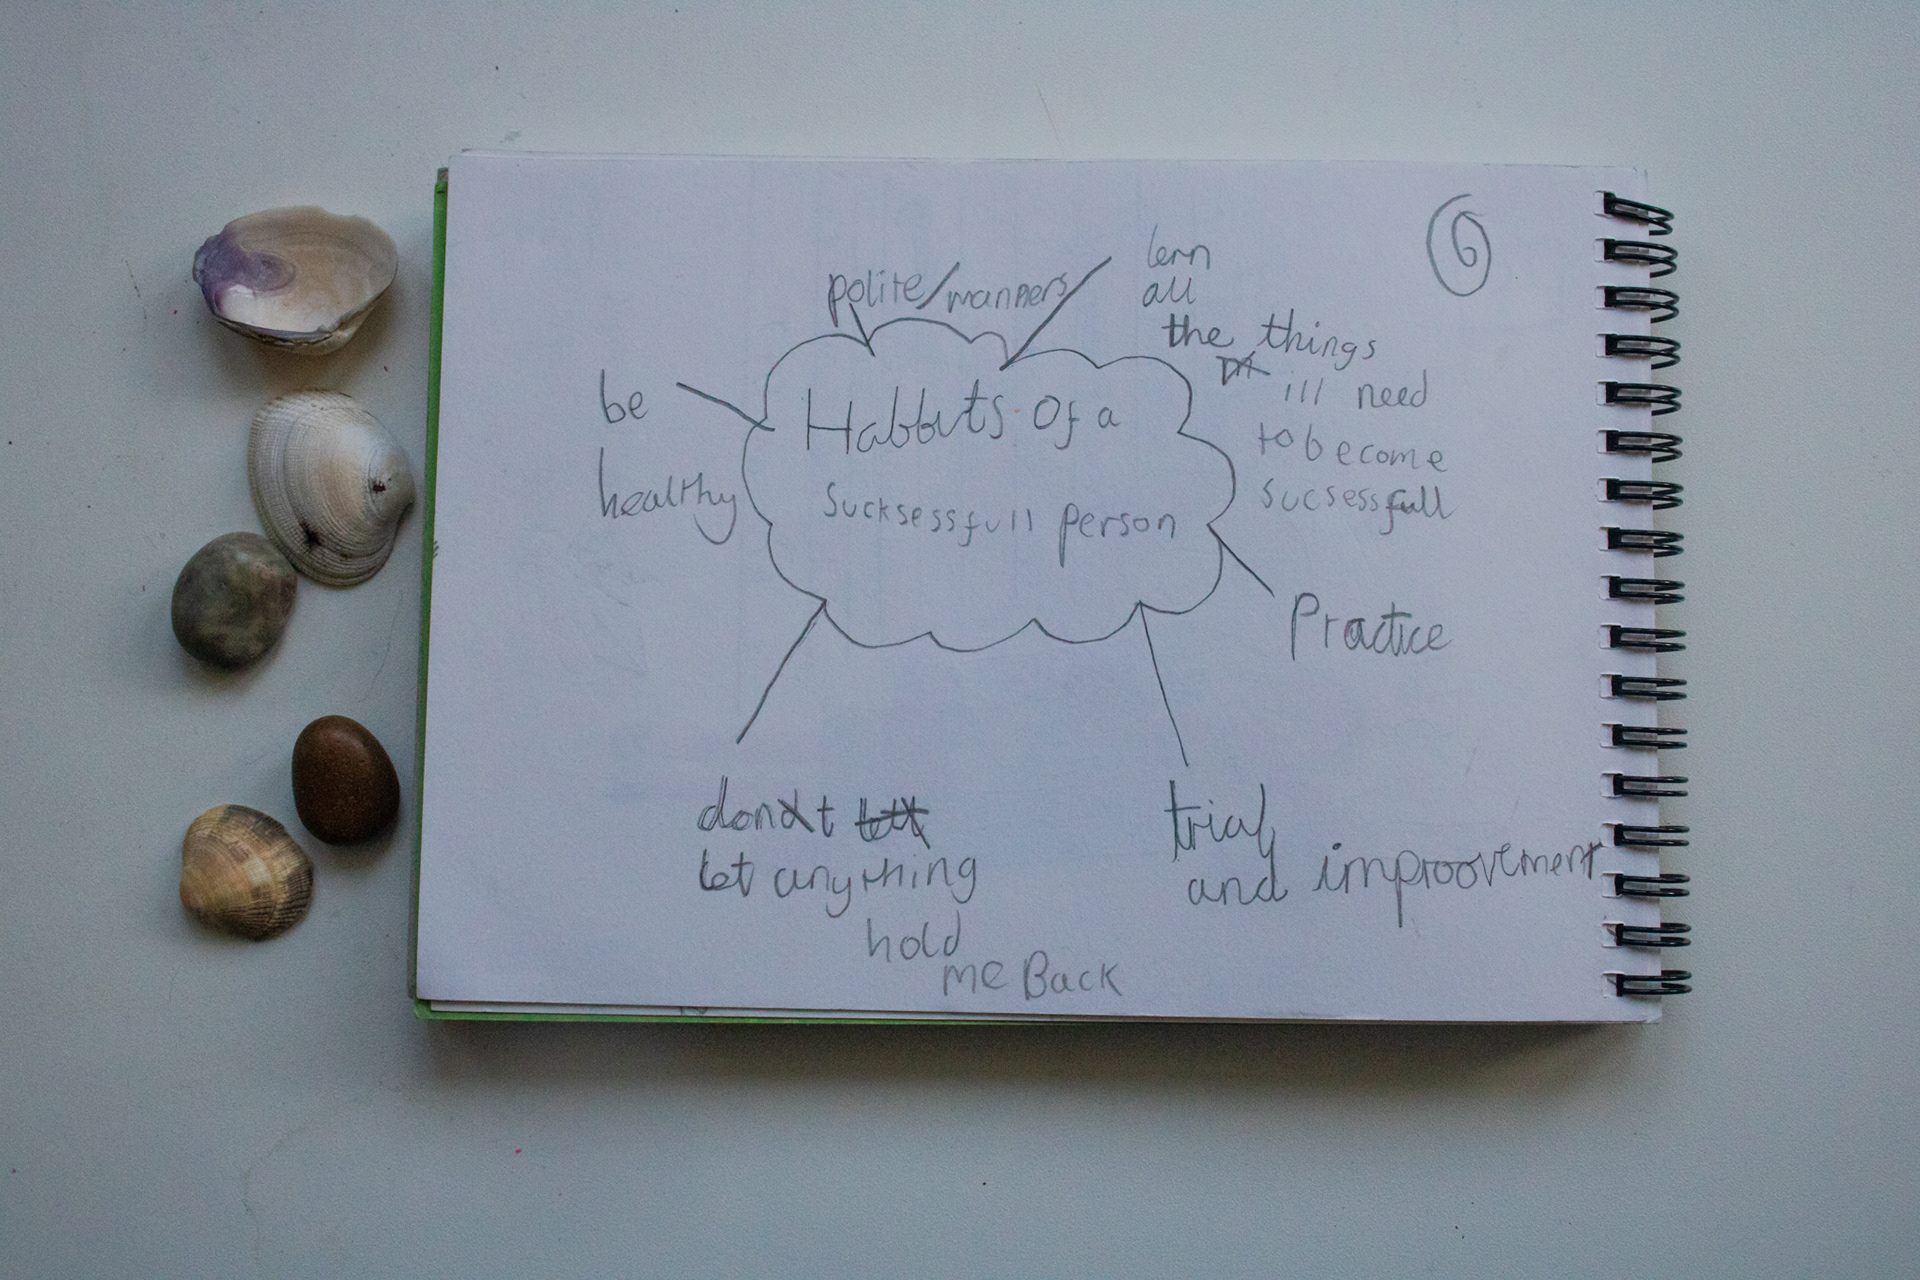 6
polite/manners
lern
all
the things
ill need
to become
sucsessfull
be
healthy
Habbits Of a
Sucksessfull person
Practice
dont
let anything
hold
me Back
trial
and improovement